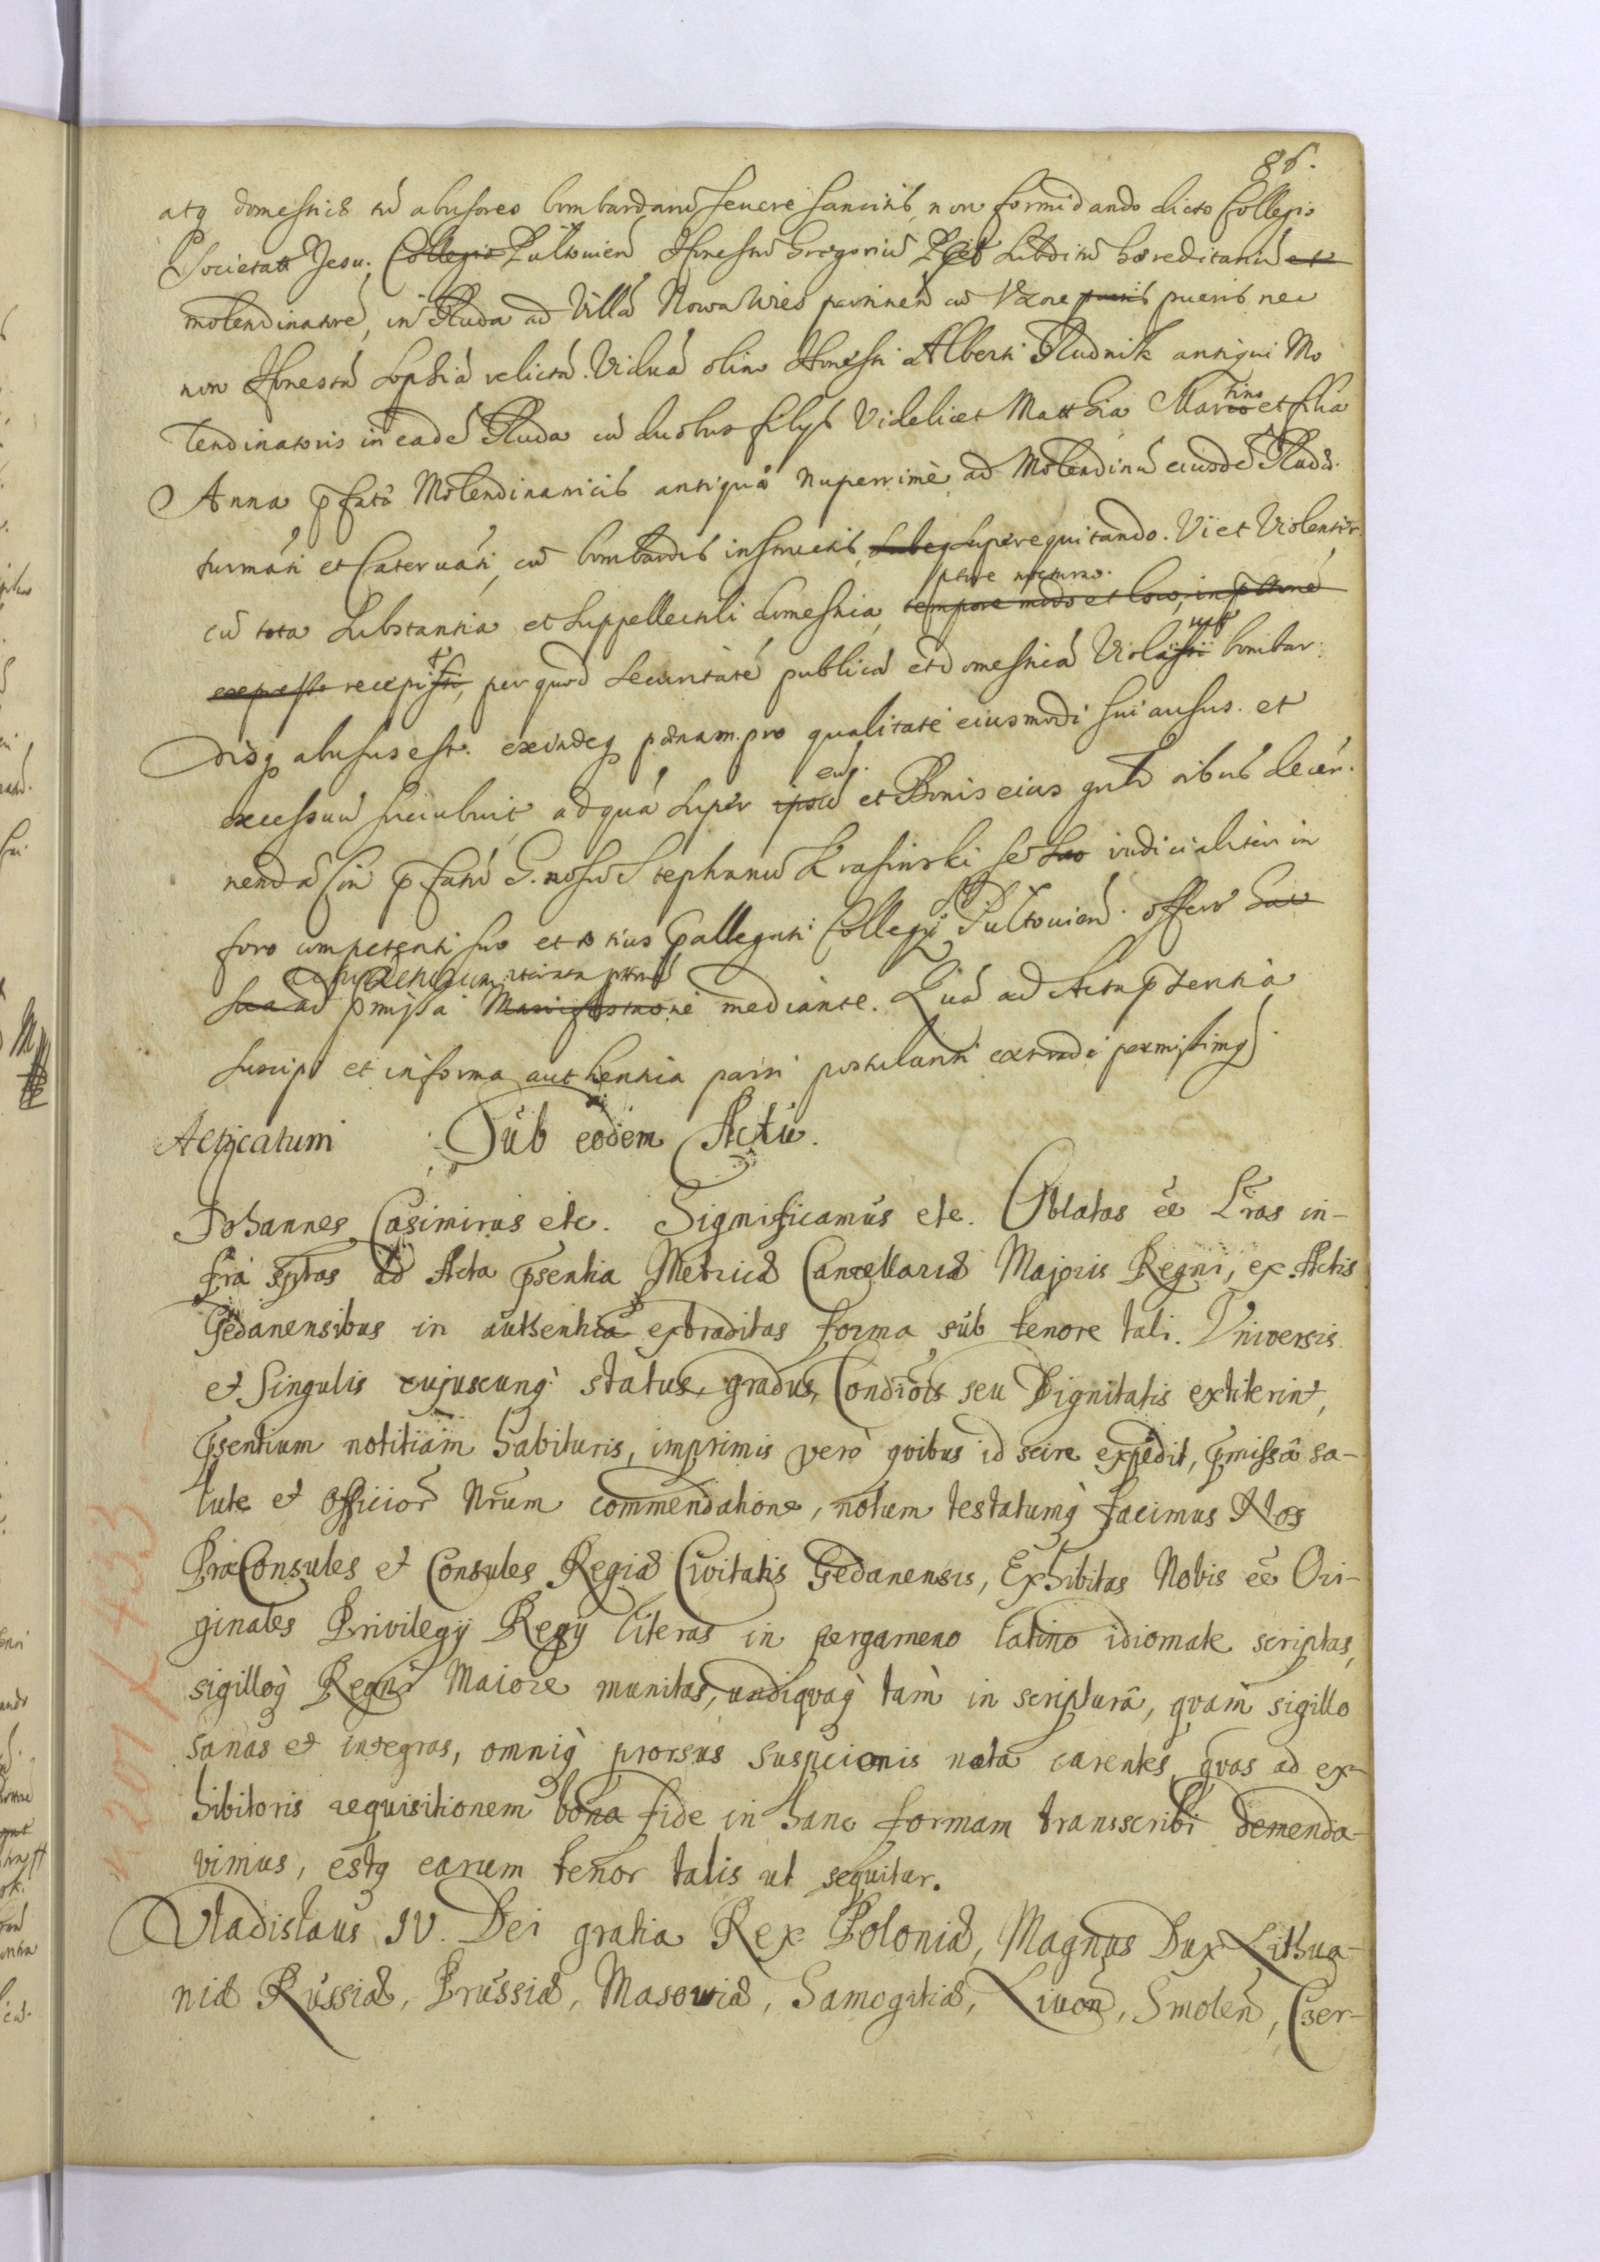 86.
atq domesticis tũ abusores bombardarũ severè sancitis, non formidando dicto Collegio
Societatis Jesu. Collegio Pultovien Honestũ Gregoriũ subditũ hæreditariũ et
molendinatorẽ, in Ruda ad Villã Nowa Wies pertinen cũ Vxore pueris nec
non Honestã Sophiã relictã Viduã olim Honesti Alberti Rudnik antiqui Mo
lendinatoris in eadẽ Ruda cũ duobus filys Videlicet Matthia Martino et filia
Anna pfatã Molendinaricis antiquâ nuperrimè ad Molendinũ eiusdẽ Rudæ
turmati et Catervati, cũ bombardis instructis, superequitando. Vi et Violenter
pctore nocturno.
cũ tota substantia et suppellectili domestica, tempore modo et loco, in ptione
expresso recepit, per quod securitatẽ publicã et domesticã Violavit bombar:
disq abusus est. exindeq pœnam pro qualitate eiusmodi sui ausus et
excessuũ succubuit ad quã super eũ ipsũ et Bonis eius decer
nendã in pfatũ G.nosũ Stephanũ Krasinski se suo iudicialiter in
foro competenti suo et totius pallegati Collegij Pultovien offert
sua ad pmissa Manifestatione mediante. Quã ad Acta pntia
suscipi et in forma authentica parti postulanti extradi permisimus
Acticatum Sub eodem Actu.
Johannes Casimirus etc. Significamus etc. Oblatas eẽ Lras in-
fra sptas ad Acta psentia Metricæ Cancellariæ Majoris Regni, ex Actis
Gedanensibus in authentica extraditas forma sub tenore tali. Vniversis
et Singulis cujuscunq status, gradus, Condiois seu Dignitatis extiterint,
psentium notitiam habituris, imprimis verò qvibus id scire expedit, pmissâ sa-
lute et officior Nrum commendatione, notum testatumq facimus Nos
PræConsules et Consules Regiæ Civitatis Gedanensis, Exhibitas Nobis eẽ Ori-
ginales Privilegij Regij literas in pergameno latino idiomate scriptas,
sigilloq Regni Maiore munitas, undiquaq tam in scripturâ, qvam sigillo
sanas et integras, omniq prorsus suspcionis nota carentes, qvas ad ex-
hibitoris requisitionem bona fide in hanc formam transscribi demenda-
vimus, estq earum tenor talis ut seqvitur.
Vladislaus IV. Dei gratia Rex Poloniæ, Magnus Dux Lithua-
niæ Russiæ, Prussiæ, Masowiæ, Samogitiæ, Livoñ, Smoleñ, Czer-
K 201 K 433